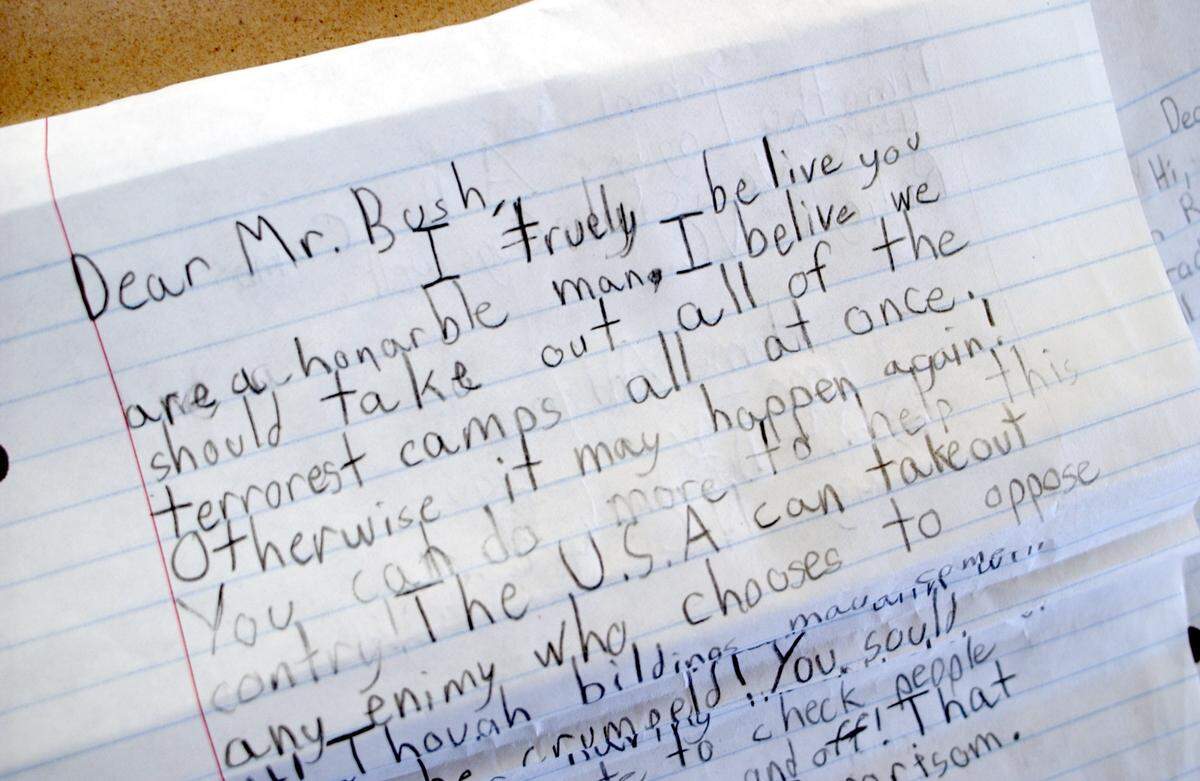 Dear Mr. Bush,
I truely belive you
are a honarble man. I belive we
should take out all of the
terrorest camps all at once.
Otherwise it may happen again!
You can do more to help this
contry! The U.S.A can takeout
any enimy who chooses to oppose
Though bildings
crumpeld! You sould
to check people
and off! That
Dea
Hi,